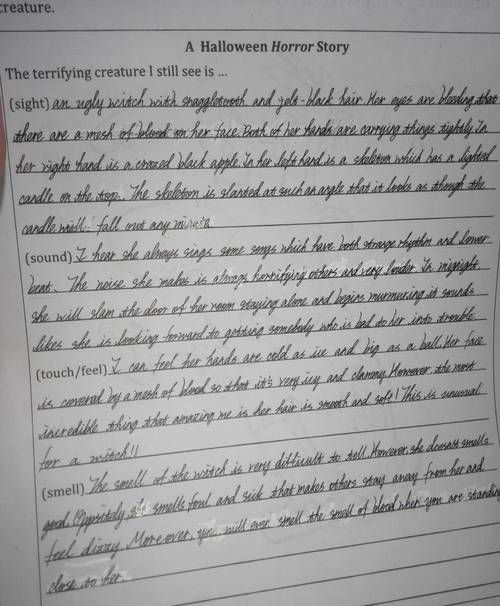 creature.
A Halloween Horror Story
The terrifying creature I still see is ...
(sight) an ugly witch with snaggletooth and jets-black hair. Her eyes are bleeding that
there are a mesh of blood on her face. Both of her hands are carrying things tightly. In
her right hand is a crazed black apple. In her left hand is a skeleton which has a lighted
candle on the top. The skeleton is slanted at such an angle that it looks as though the
candle will fall out any minute.
(sound) I hear she always sings some songs which have both strange rhythm and lower
beat. The noise she makes is always horrifying others and very louder. In nignight
she will slam the door of her room staying alone and begins murmuring, it sounds
likes she is looking forward to getting somebody who is bad to her into trouble
(touch/feel) I can feel her hands are cold as ice and big as a ball. Her face
is covered by a mesh of blood so that it's very icy and clammy. However the most
incredible thing that amazing me is her hair is smooth and soft! This is unusual
for a witch!!
(smell) The smell of the witch is very difficult to tell. However, she doesn't smells
good. Oppsitely, she smells foul and sick that makes others stay away from her and
feel dizzy. Moreover, you will even smell the smell of blood when you are standing
close to her.